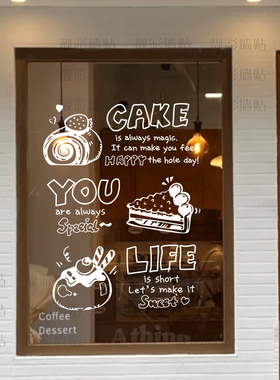 CAKE
is always magic.
It can make you feel
HAPPY the hole day!
YOU
are always
Special~
LIFE
is short
Let's make it
Sweet
Coffee
Dessert